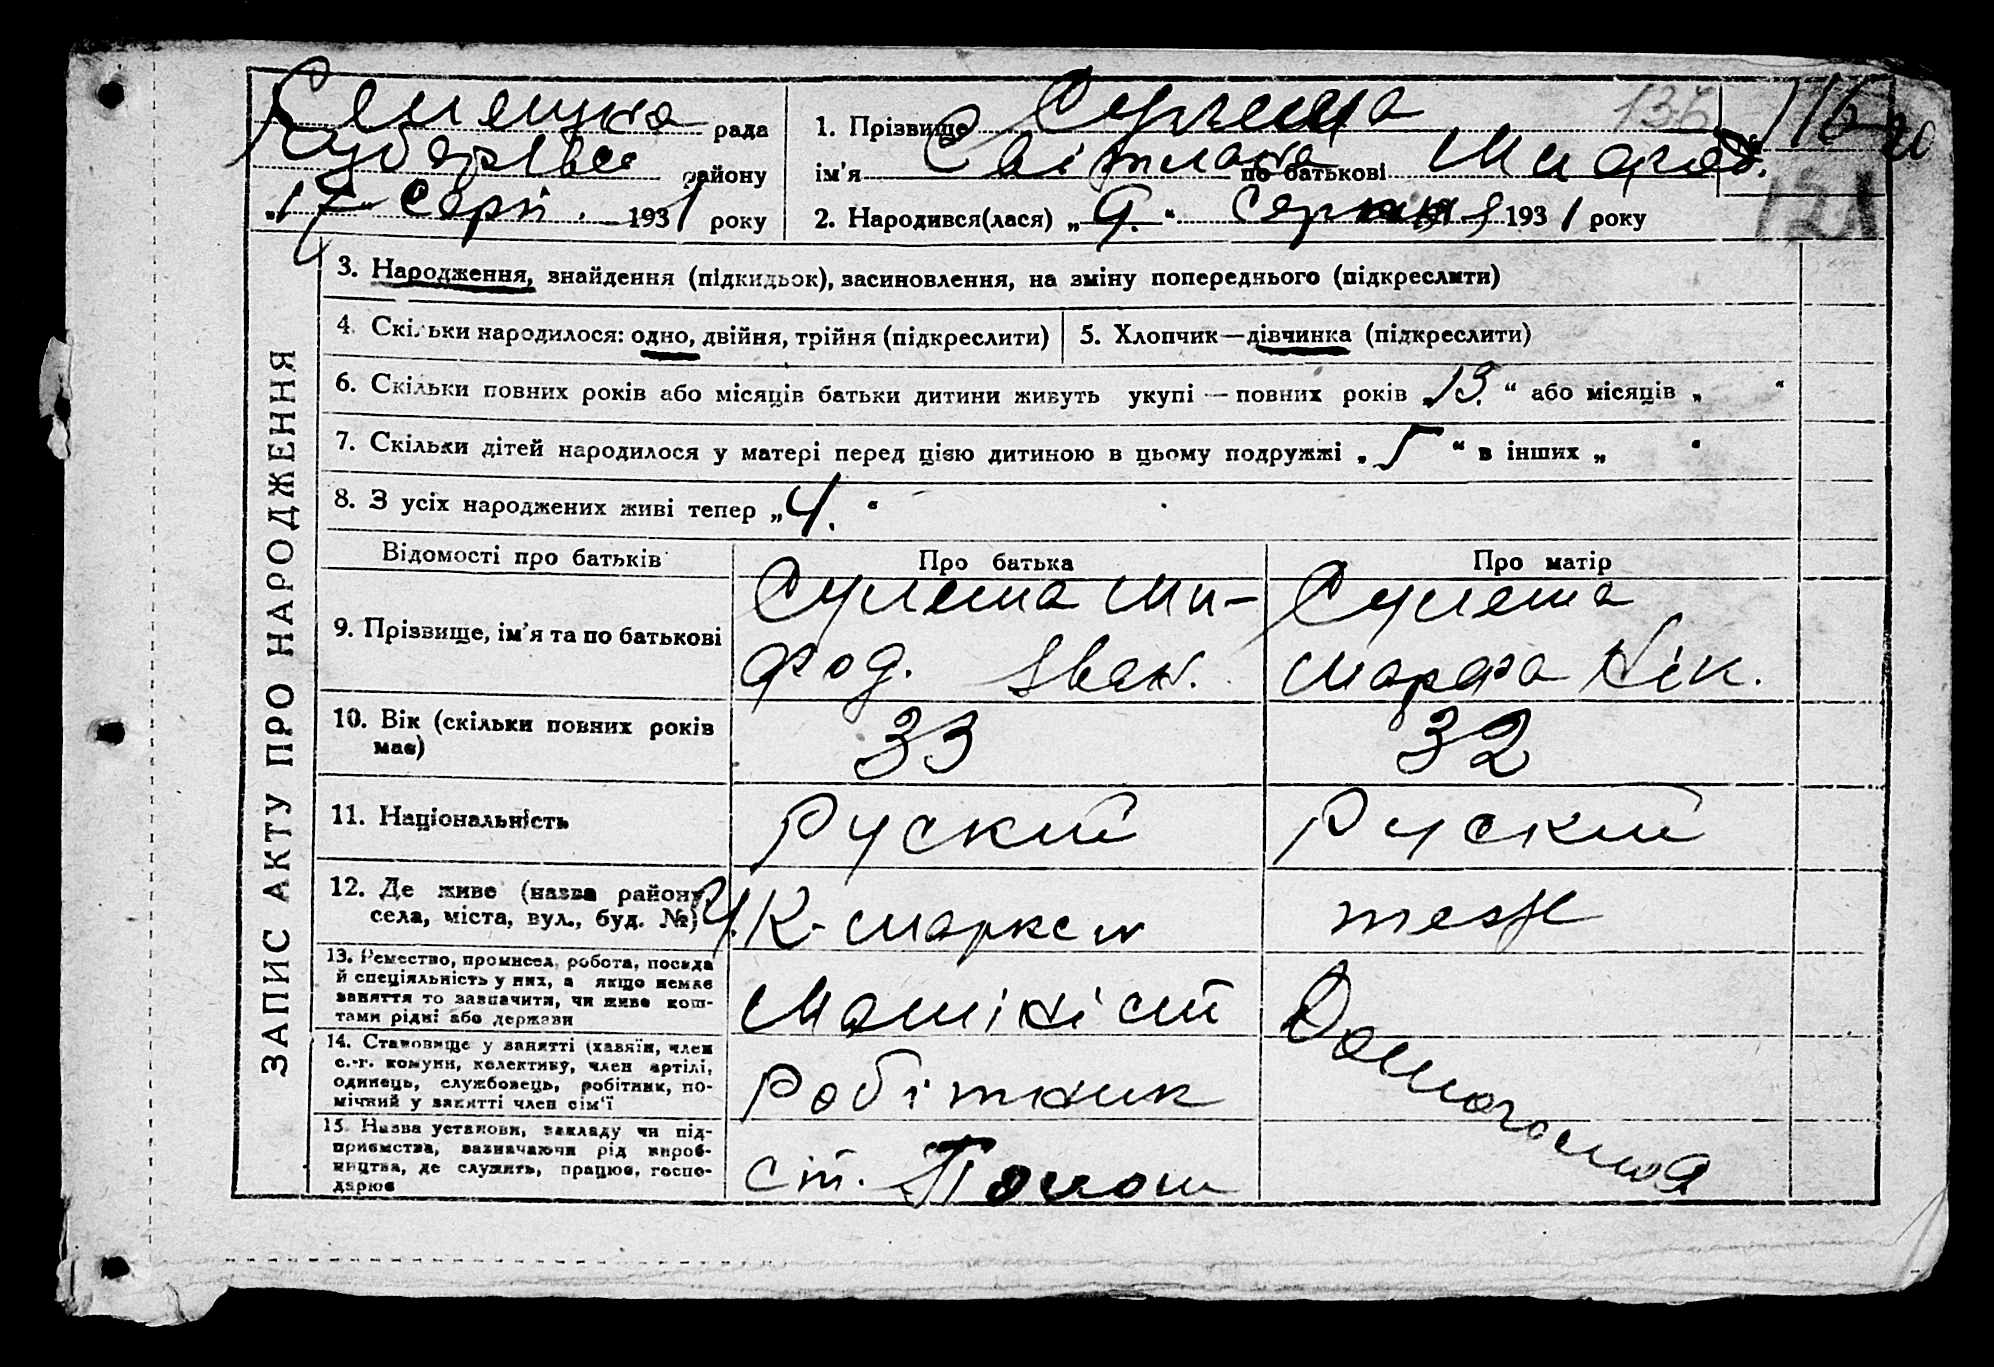 рада
1. Прізвище Сулеша
135
116
району
ім'я Світлана по батькові Мифод.
"17" Серп. 1931 року
2. Народився(лася) „9." Серпня 1931 року
121
ЗАПИС АКТУ ПРО НАРОДЖЕННЯ
3. Народження, знайдення (підкидьок), засиновлення, на зміну попереднього (підкреслити)
4. Скільки народилося: одно, двійня, трійня (підкреслити)
5. Хлопчик—дівчинка (підкреслити)
6. Скільки повних років або місяців батьки дитини живуть укупі — повних років „13." або місяців „ "
7. Скільки дітей народилося у матері перед цією дитиною в цьому подружжі „5" в інших „ "
8. З усіх народжених живі тепер „4."
Відомості про батьків
Про батька
Про матір
9. Прізвище, ім'я та по батькові
Сулеша Ми-
фод. Іван.
Сулеша
Марфа Нік.
10. Вік (скільки повних років
має)
33
32
11. Національність
Руский
Руский
12. Де живе (назва району,
села, міста, вул., буд. №)
К-Маркса
теж
13. Ремество, промисел, робота, посада
й спеціяльність у них, а якщо немає
заняття то зазначити, чи живе кош-
тами рідні або держави
Машініст
Домогосподарня
14. Становище у занятті (хазяїн, член
с.-г. комуни, колективу, член артілі,
одинець, службовець, робітник, по-
мічний у занятті член сім'ї
Робітник
15. Назва установи, закладу чи під-
приємства, зазначаючи рід вироб-
ництва, де служить, працює, госпо-
дарює
ст.